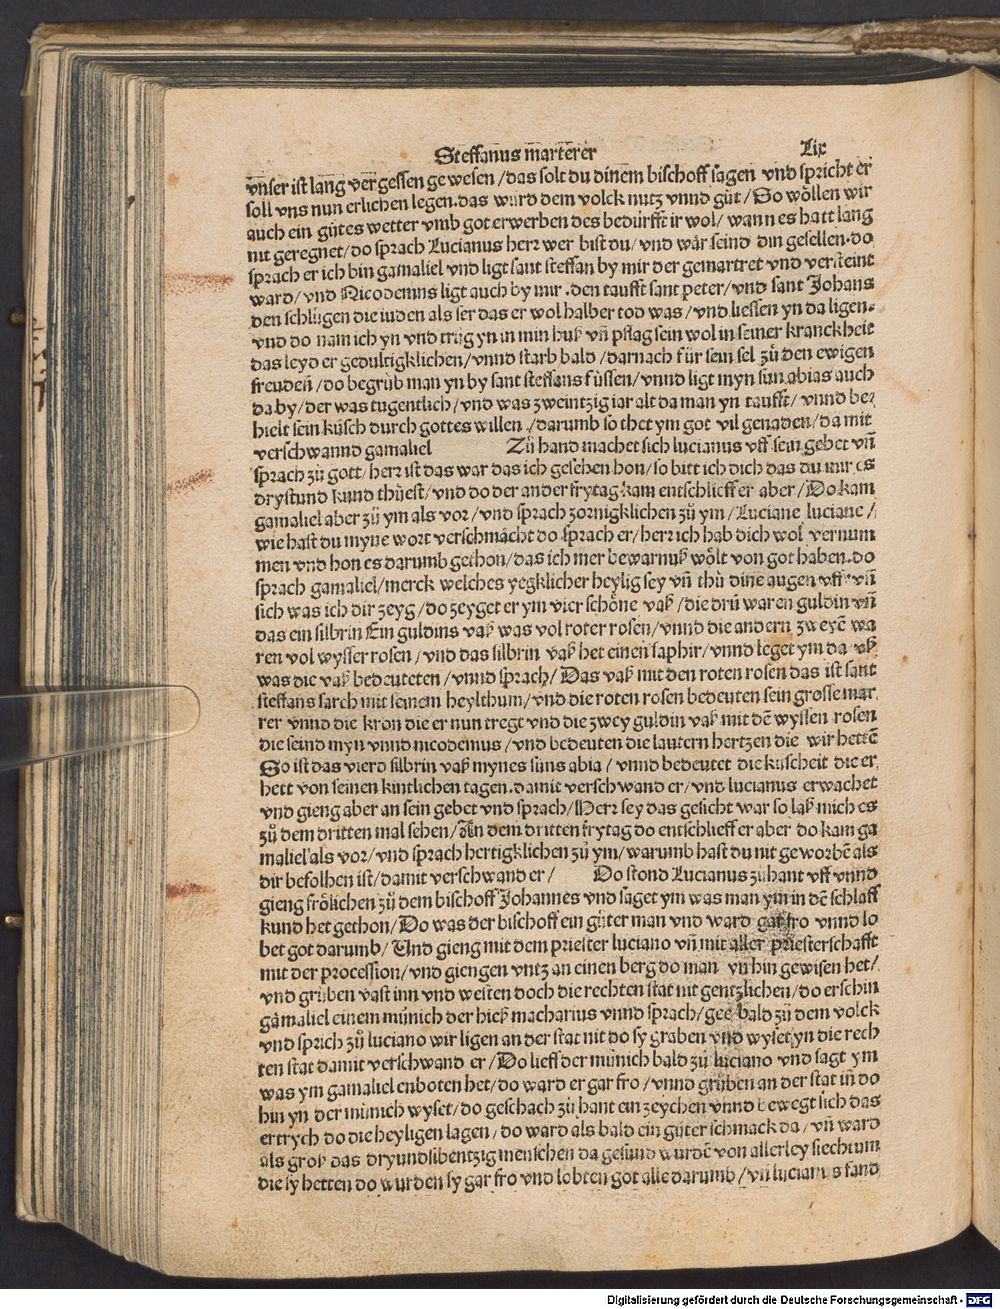 Steffanus marterer Lix
vnser ist lang vergessen gewesen /das solt du dinem bischoff sagen vnd spricht er
soll vns nun erlichen legen.das wurd dem volck nutz vnnd gůt/So wöllen wir
auch ein gůtes wetter vmb got erwerben des bedürfft ir wol/wann es hatt lang
nit geregnet/do sprach Lucianus herr wer bist du/vnd wär seind din gesellen.do
sprach er ich bin gamaliel vnd ligt sant steffan by mir der gemartret vnd versteint
ward/vnd Nicodemus ligt auch by mir.den taufft sant peter/vnd sant Johans
den schlůgen die iuden als ser das er wol halber tod was /vnd liessen yn da ligen.
vnd do nam ich yn vnd trůg yn in min huß vn̄ pflag sein wol in seiner kranckheit
das leyd er gedultigklichen/vnnd starb bald /darnach für sein sel zů den ewigen
freuden /do begrůb man yn by sant steffans füssen/vnnd ligt myn sun abias auch
da by/der was tugentlich/vnd was zweintzig iar alt da man yn taufft/ vnnd be⸗
hielt sein küsch durch gottes willen /darumb so thet ym got vil genaden/da mit
verschwannd gamaliel Zů hand machet sich lucianus vff sein gebet vn̄
sprach zů gott/herr ist das war das ich gesehen hon/so bitt ich dich das du mir es
drystund kund thüest/vnd do der ander frytag kam entschlieff er aber/Do kam
gamaliel aber zů ym als vor/vnd sprach zornigklichen zů ym/Luciane luciane/
wie hast du myne wort verschmächt do sprach er/herr ich hab dich wol vernum
men vnd hon es darumb gethon/das ich mer bewarnuß wölt von got haben.do
sprach gamaliel/merck welches yegklicher heylig sey vn̄ thů dine augen vff vn̄
sich was ich dir zeyg/do zeyget er ym vier schöne vaß/die drü waren guldin vn̄
das ein silbrin Ein guldins vaß was vol roter rosen/vnnd die andern zweyē wa
ren vol wysser rosen /vnd das silbrin vaß het einen saphir/vnnd leget ym da vß
was die vaß bedeuteten /vnnd sprach/Das vaß mit den roten rosen das ist sant
steffans sarch mit seinem heylthum/vnd die roten rosen bedeuten sein grosse mar
rer vnnd die kron die er nun tregt vnd die zwey guldin vaß mit dē wyssen rosen
die seind myn vnnd nicodemus /vnd bedeuten die lautern hertzen die wir hettē
So ist das vierd silbrin vaß mynes suns abia /vnnd bedeutet die küscheit die er
hett von seinen kintlichen tagen.damit verschwand er/vnd lucianus erwachet
vnd gieng aber an sein gebet vnd sprach/Herr sey das gesicht war so laß mich es
zů dem dritten mal sehen/An dem dritten frytag do entschlieff er aber do kam ga
maliel als vor/vnd sprach hertigklichen zů ym/warumb hast du nit geworbē als
dir befolhen ist/damit verschwand er/ Do stond Lucianus zůhant vff vnnd
gieng frölichen zů dem bischoff Johannes vnd saget ym was man ym in dē schlaff
kund het gethon/Do was der bischoff ein gůter man vnd ward gar fro vnnd lo
bet got darumb/Und gieng mit dem priester luciano vn̄ mit aller priesterschafft
mit der procession/vnd giengen vntz an einen berg do man yn hin gewisen het/
vnd grůben vast inn vnd westen doch die rechten stat nit gentzlichen/do erschin
gamaliel einem münich der hieß macharius vnnd sprach/gee bald zů dem volck
vnd sprich zů luciano wir ligen an der stat nit do sy graben vnd wyset yn die rech
ten stat damit verschwand er/Do lieff der münich bald zů luciano vnd sagt ym
was ym gamaliel enboten het/do ward er gar fro /vnnd grůben an der stat in̄ do
hin yn der münich wyset/do geschach zů hant ein zeychen vnnd bewegt sich das
ertrych do die heyligen lagen/do ward als bald ein gůter schmack da/vn̄ ward
als groß das dryundsibentzig menschen da gesund wurdē von allerley siechtum
die sy hetten do wurden sy gar fro vnd lobten got alle darumb/vn̄ lucianus sand
Digitalisierung gefördert durch die Deutsche Forschungsgemeinschaft - DFG